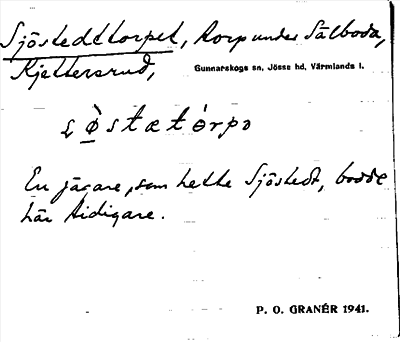 Sjöstedttorpet, torp under Sälboda,
Kjettersrud, Gunnarskogs sn, Jösse hd, Värmlands l.
En jägare, som hette Sjöstedt, bodde
här tidigare.
P. O. GRANÉR 1941.